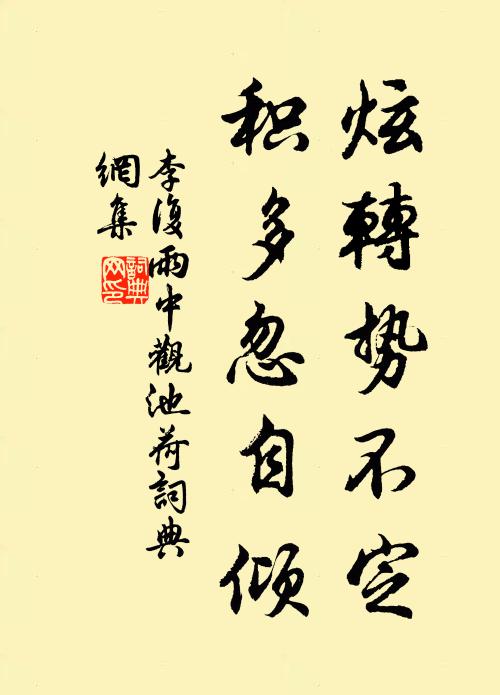 炫轉势不定
积多忽自倾
李復雨中觀池荷詞典
網集
詞典网印